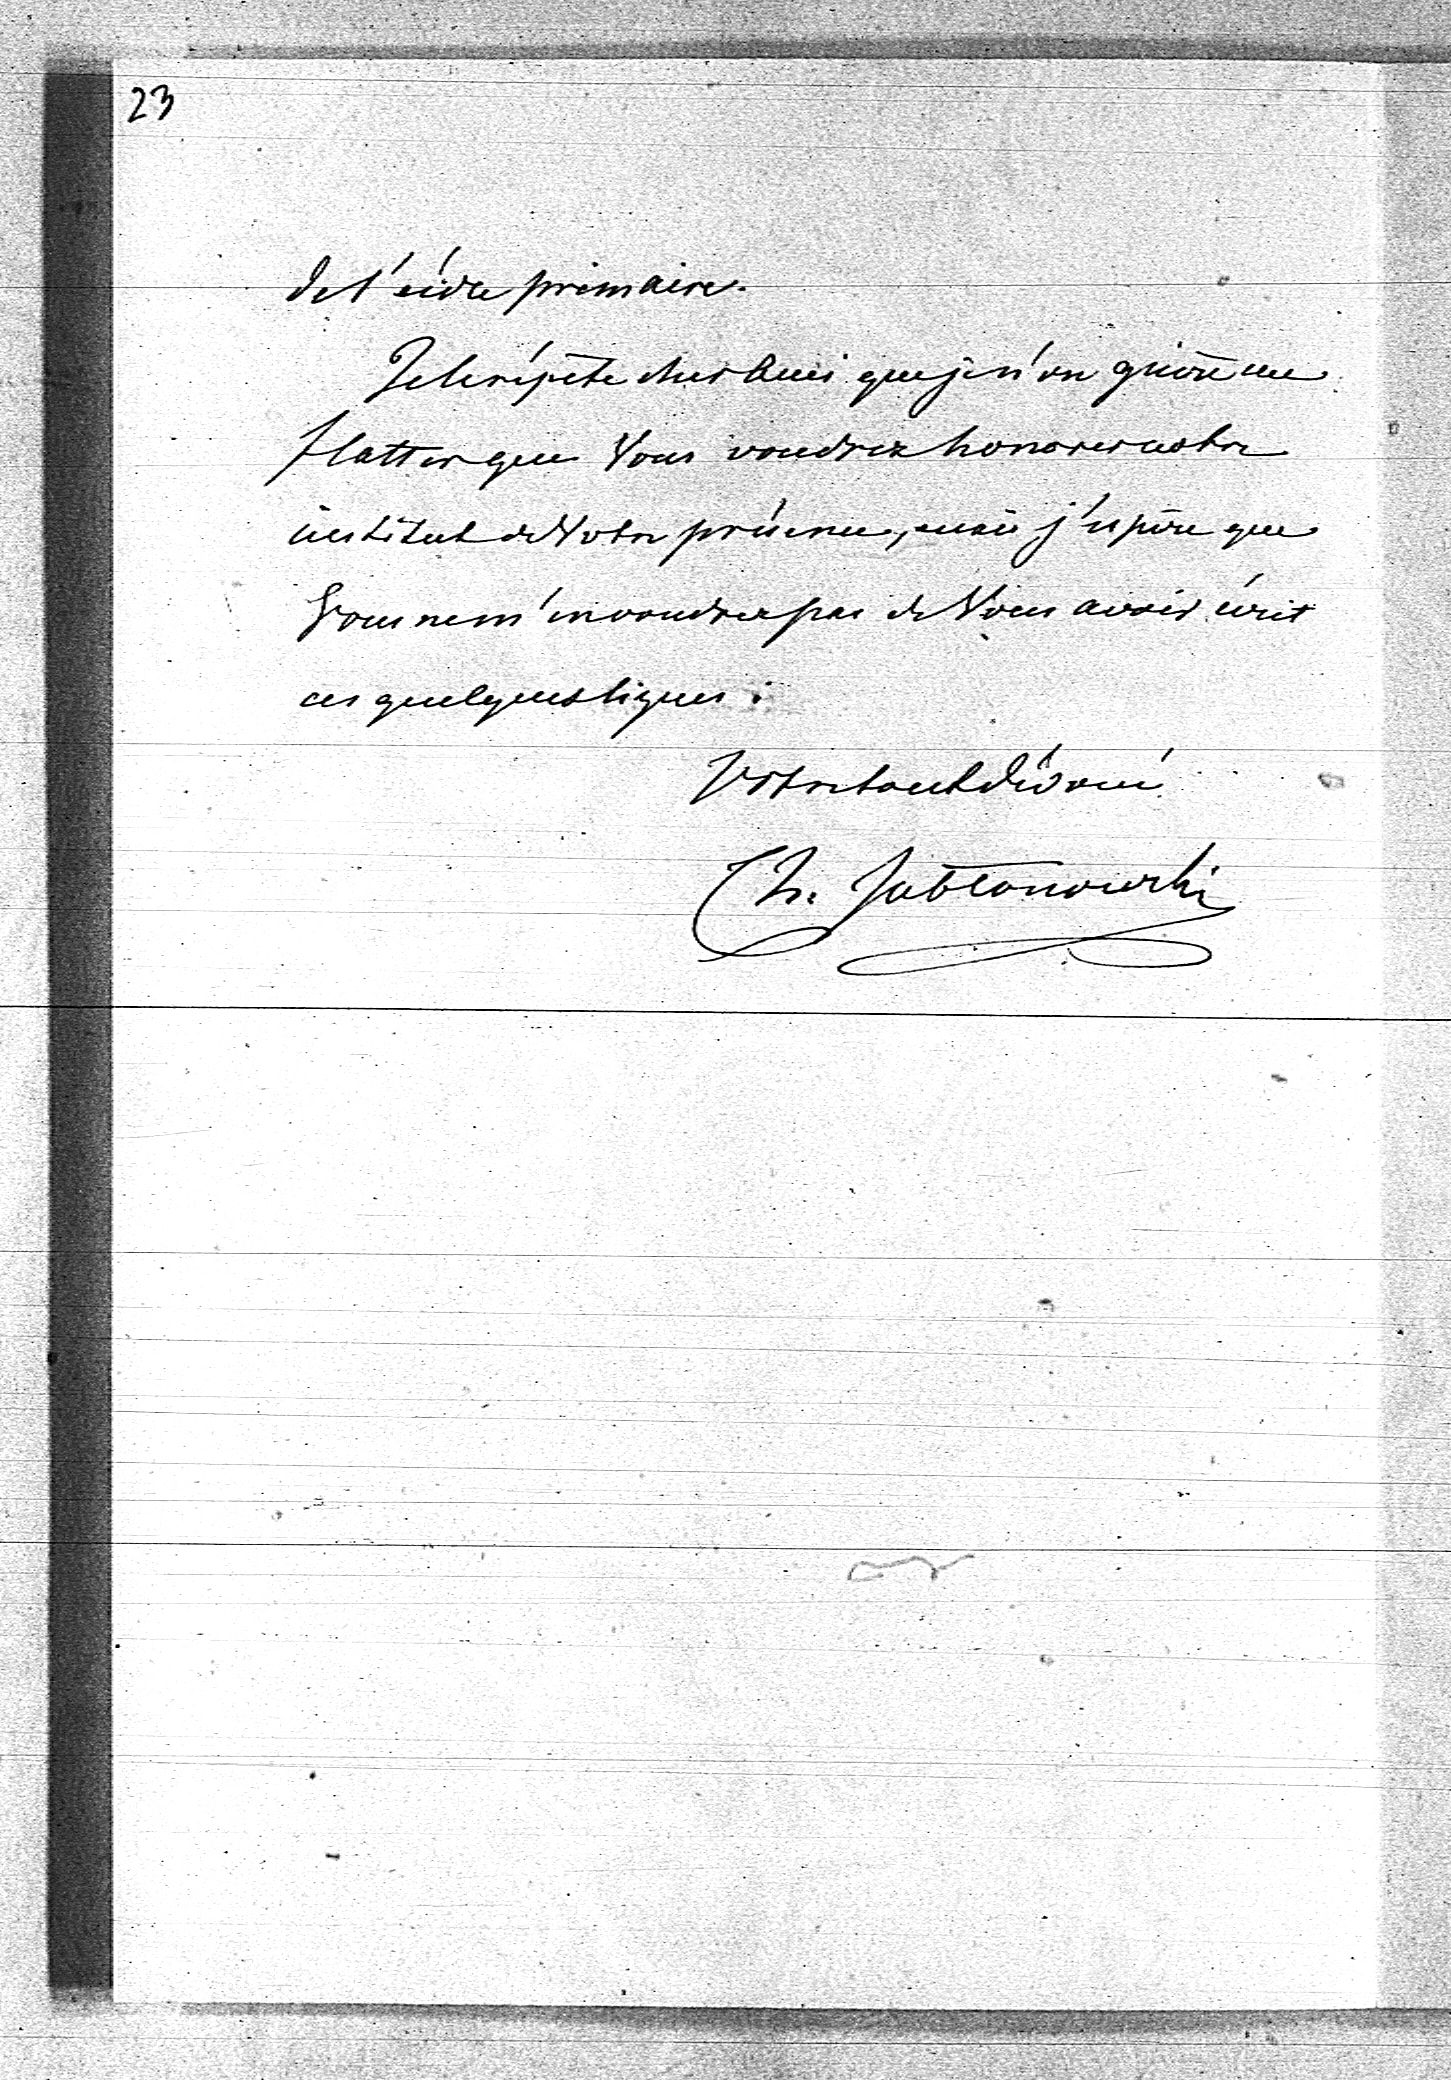 23
de l'école primaire.
Je le répète cher Ami que je n'ose guère me
flatter que Vous voudrez honorer notre
institut de Votre présence, mais j'espère que
Vous ne m'en voudrez pas de Vous avoir écrit
ces quelques lignes.
Votre tout dévoué
Ch. Jabłonowski